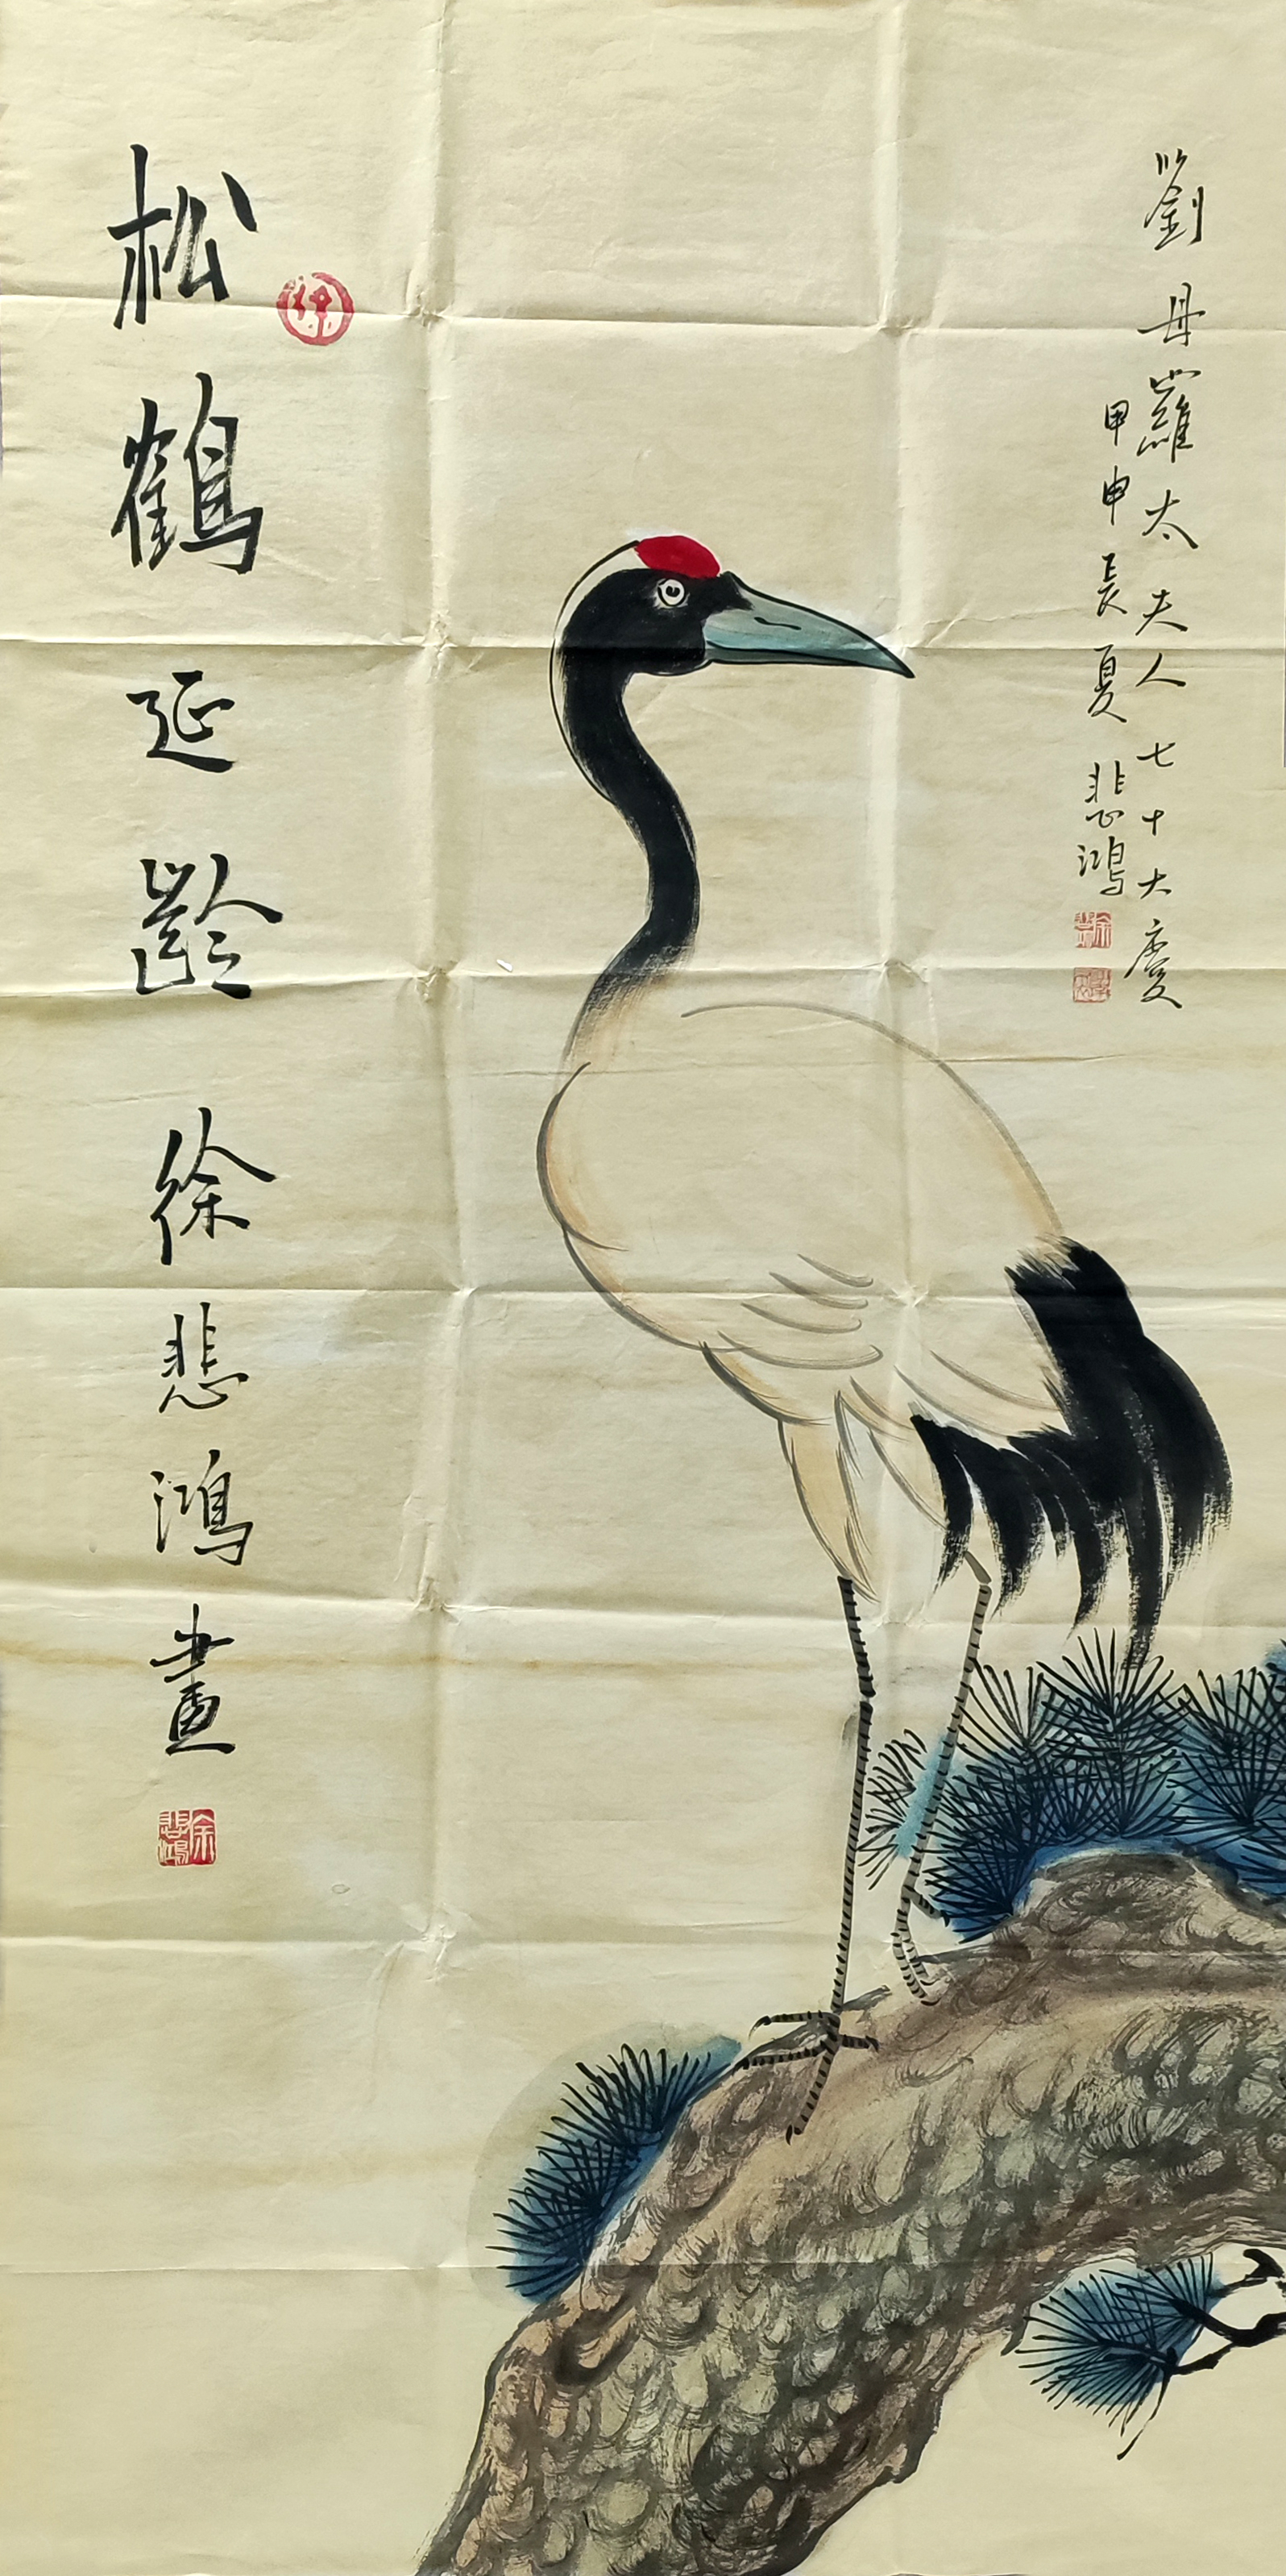 劉母羅太夫人七十大慶
甲申長夏 悲鴻
松鶴延齡 徐悲鴻畫
徐悲鴻